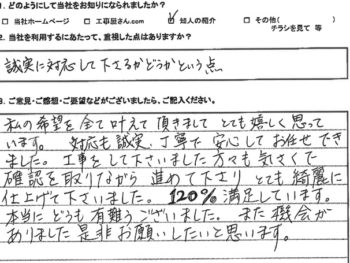 1. どのようにして当社をお知りになられましたか？
□ 当社ホームページ □ 工事屋さん.com ☑ 知人の紹介 □ その他( )
チラシを見て 等
2. 当社を利用するにあたって、重視した点はありますか？
誠実に対応して下さるがどうかという点
3. ご意見・ご感想・ご要望などがございましたら、ご記入ください。
私の希望を全て叶えて頂きまして とても嬉しく思って
います。 対応も誠実、丁寧で 安心して お任せ でき
ました。工事をして下さいました 方々も 気さくで
確認を取りながら 進めて下さり とても 綺麗に
仕上げて下さいました。120% 満足しています。
本当に どうも 有難う ございました。 また 機会が
ありました 是非 お願いしたいと思います。